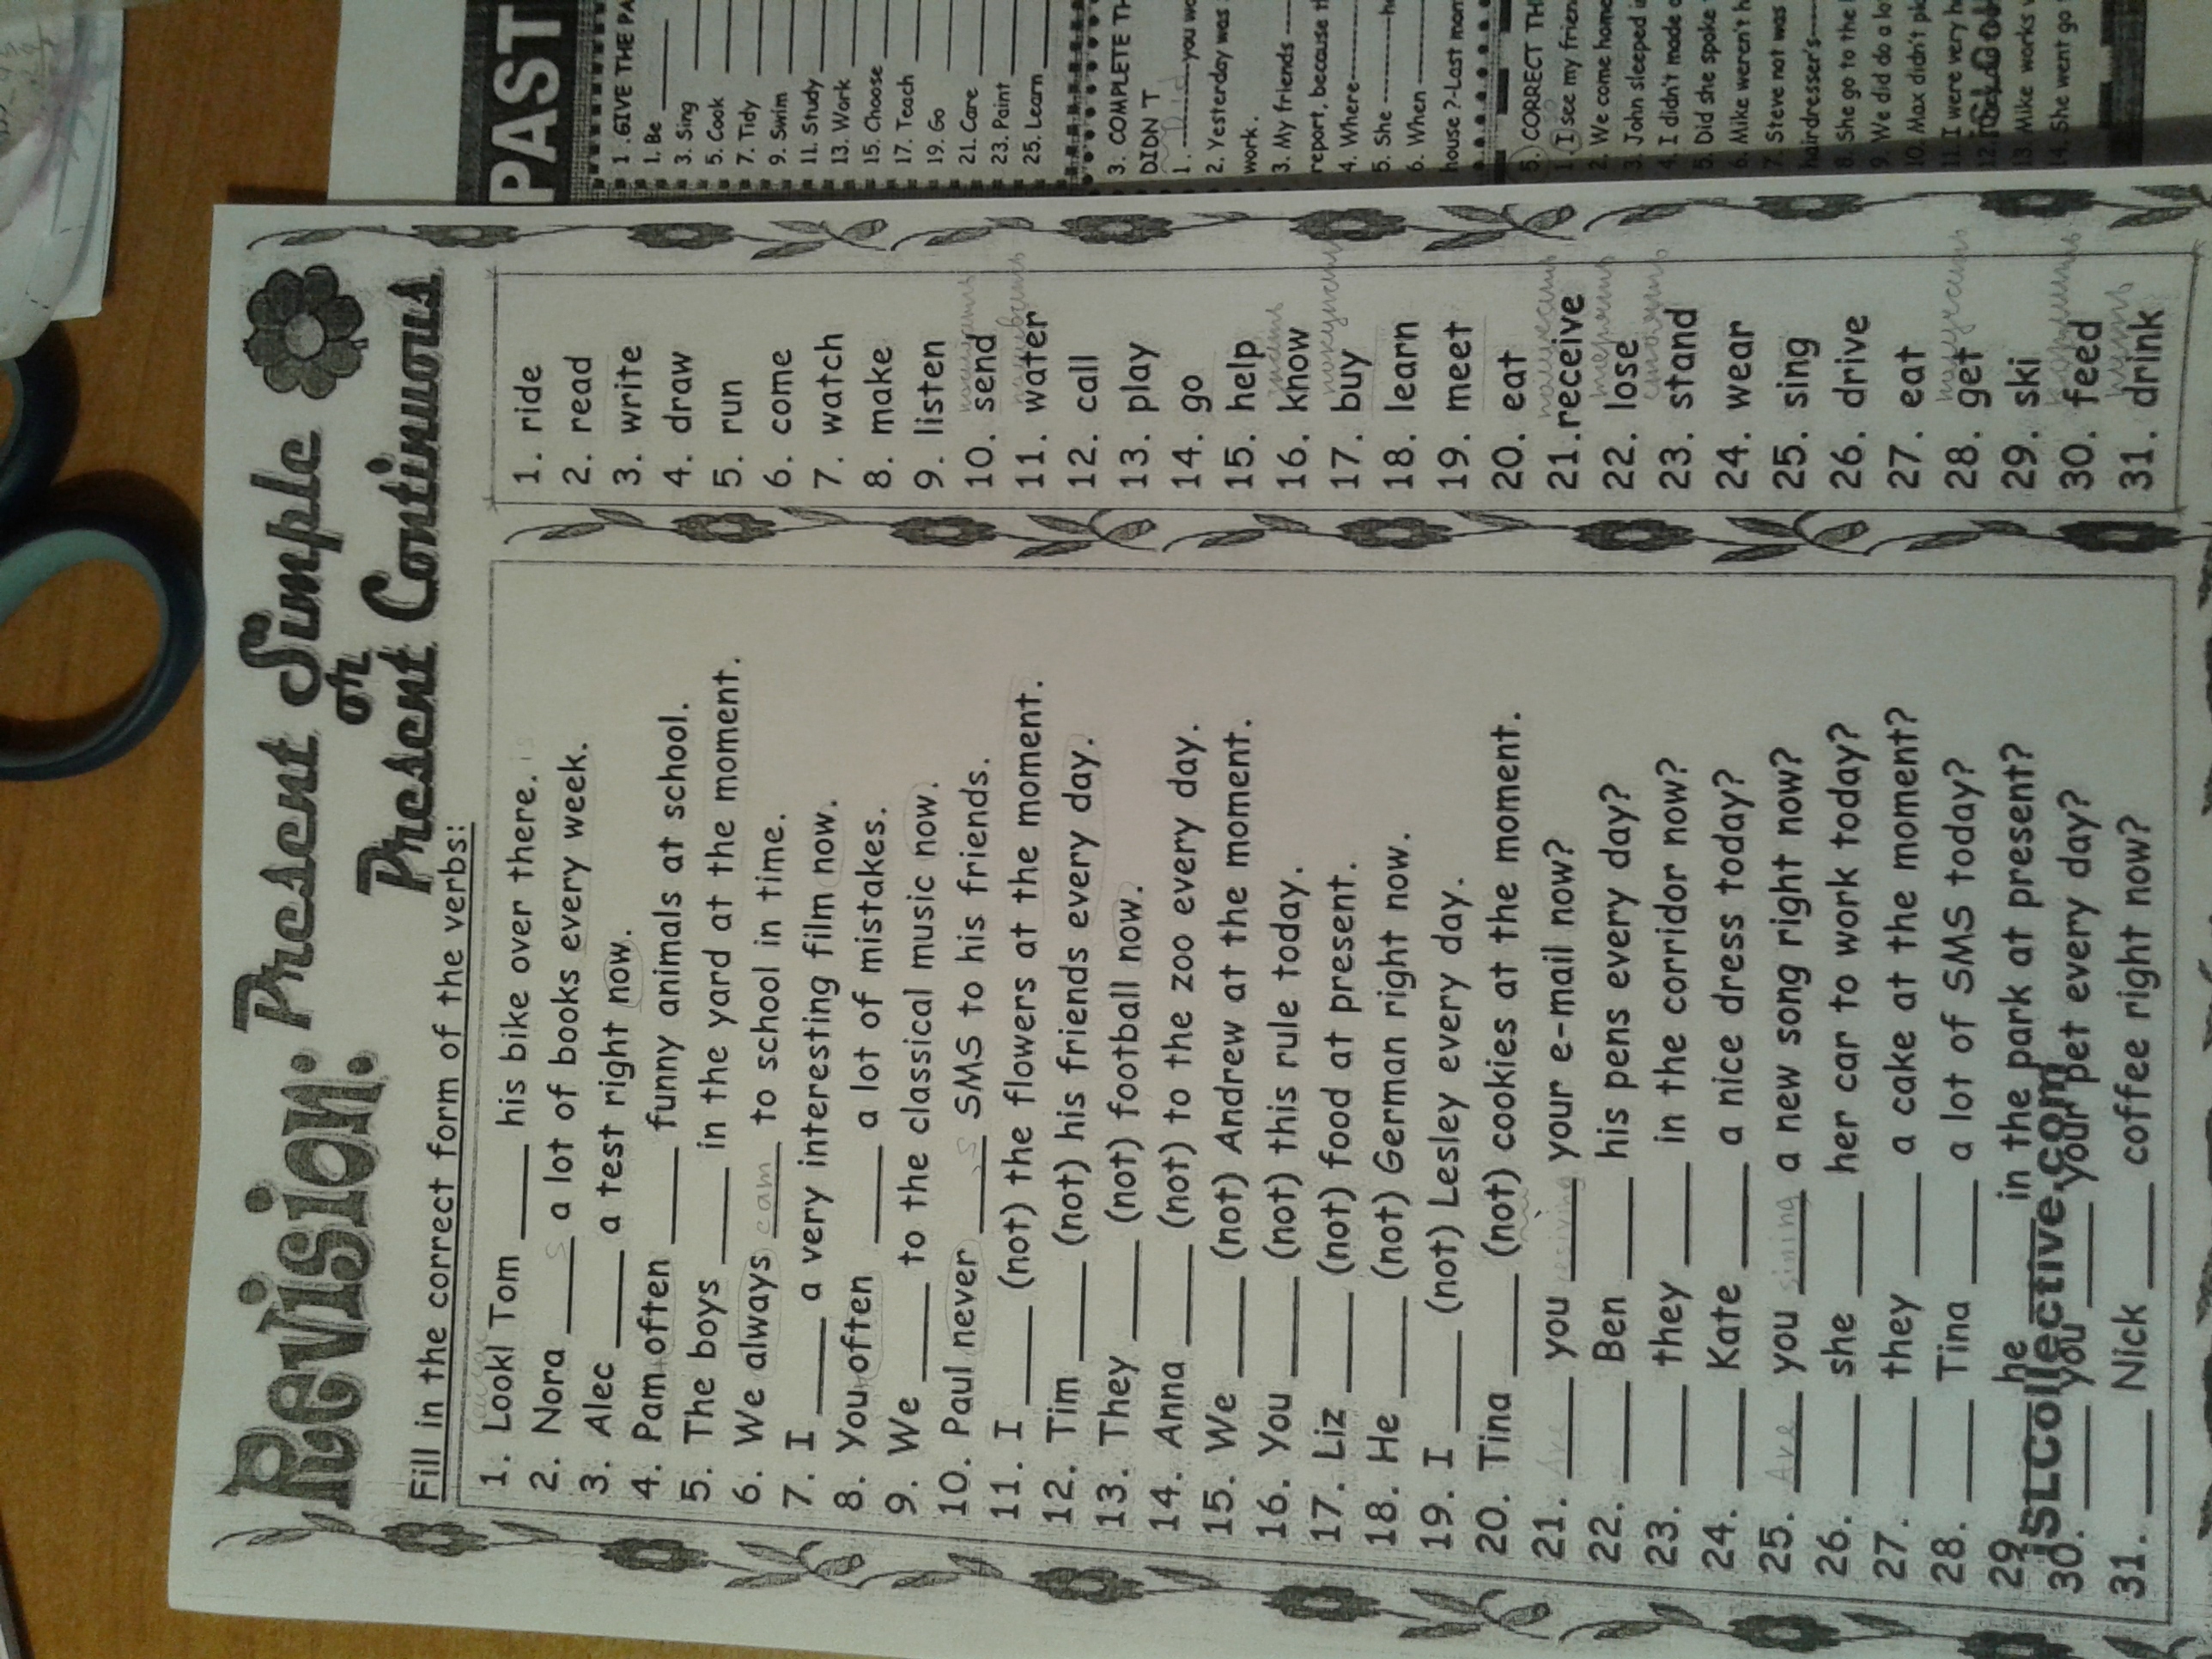 Revision: Present Simple
or
Present Continuous
Fill in the correct form of the verbs:
1. Look! Tom ____ his bike over there. is
2. Nora ____s a lot of books every week.
3. Alec ____ a test right now.
4. Pam often ____ funny animals at school.
5. The boys ____ in the yard at the moment.
6. We always cam to school in time.
7. I ____ a very interesting film now.
8. You often ____ a lot of mistakes.
9. We ____ to the classical music now.
10. Paul never ____s SMS to his friends.
11. I ____ (not) the flowers at the moment.
12. Tim ____ (not) his friends every day.
13. They ____ (not) football now.
14. Anna ____ (not) to the zoo every day.
15. We ____ (not) Andrew at the moment.
16. You ____ (not) this rule today.
17. Liz ____ (not) food at present.
18. He ____ (not) German right now.
19. I ____ (not) Lesley every day.
20. Tina ____ (not) cookies at the moment.
21. Are you ____ your e-mail now?
22. ____ Ben ____ his pens every day?
23. ____ they ____ in the corridor now?
24. ____ Kate ____ a nice dress today?
25. Are you sining a new song right now?
26. ____ she ____ her car to work today?
27. ____ they ____ a cake at the moment?
28. ____ Tina ____ a lot of SMS today?
29. ____ he ____ in the park at present?
30. ____ you ____ your pet every day?
31. ____ Nick ____ coffee right now?
iSLCollective.com
1. ride
2. read
3. write
4. draw
5. run
6. come
7. watch
8. make
9. listen
10. send
11. water
12. call
13. play
14. go
15. help
16. know
17. buy
18. learn
19. meet
20. eat
21. receive
22. lose
23. stand
24. wear
25. sing
26. drive
27. eat
28. get
29. ski
30. feed
31. drink
PAST
1. GIVE THE PA
1. Be
3. Sing
5. Cook
7. Tidy
9. Swim
11. Study
13. Work
15. Choose
17. Teach
19. Go
21. Care
23. Paint
25. Learn
3. COMPLETE TH
DIDN T
1. ----------you wo
2. Yesterday was
work.
3. My friends ----
report, because t
4. Where----------
5. She --------he
6. When --------
house ?-Last mon
5. CORRECT TH
1. I see my frien
2. We come home
3. John sleeped i
4. I didn't made
5. Did she spoke
6. Mike weren't h
7. Steve not was
hairdresser's----
8. She go to the
9. We did do a lo
10. Max didn't pl
11. I were very h
13. Mike works
14. She went go